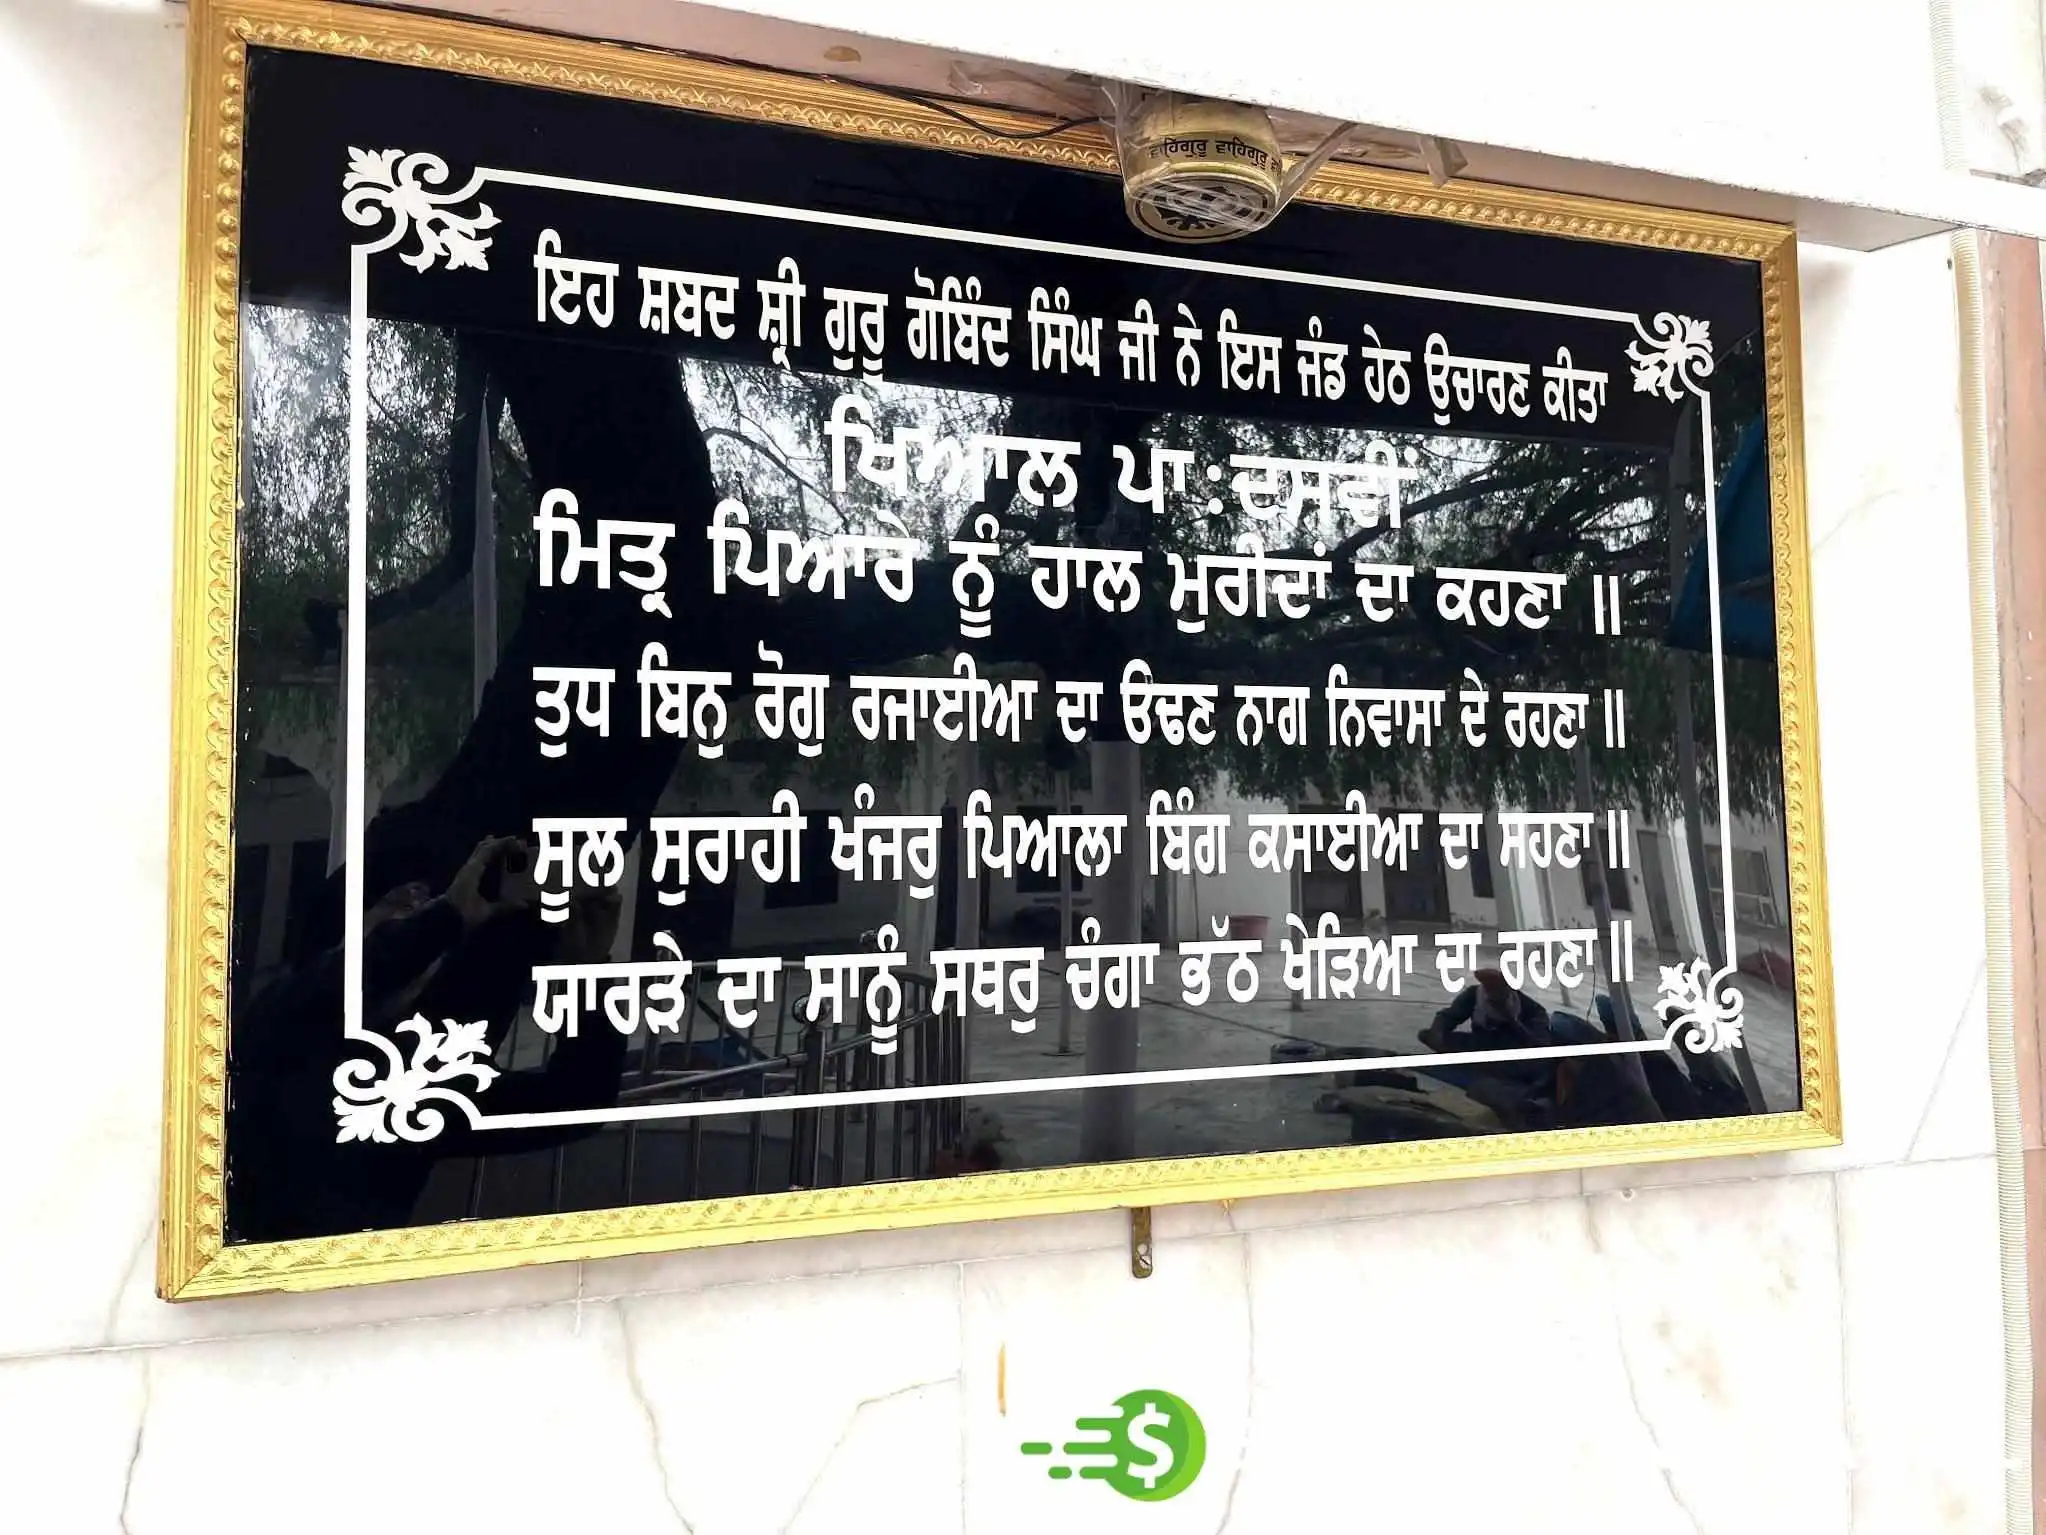 ਵਾਹਿਗੁਰੂ ਵਾਹਿਗੁਰੂ
ਇਹ ਸ਼ਬਦ ਸ਼੍ਰੀ ਗੁਰੂ ਗੋਬਿੰਦ ਸਿੰਘ ਜੀ ਨੇ ਇਸ ਜੰਡ ਹੇਠ ਉਚਾਰਣ ਕੀਤਾ
ਖਿਆਲ ਪਾ:ਦਸਵੀਂ
ਮਿਤ੍ਰ ਪਿਆਰੇ ਨੂੰ ਹਾਲ ਮੁਰੀਦਾਂ ਦਾ ਕਹਣਾ ॥
ਤੁਧ ਬਿਨੁ ਰੋਗੁ ਰਜਾਈਆ ਦਾ ਓਢਣ ਨਾਗ ਨਿਵਾਸਾ ਦੇ ਰਹਣਾ ॥
ਸੂਲ ਸੁਰਾਹੀ ਖੰਜਰੁ ਪਿਆਲਾ ਬਿੰਗ ਕਸਾਈਆ ਦਾ ਸਹਣਾ ॥
ਯਾਰੜੇ ਦਾ ਸਾਨੂੰ ਸਥਰੁ ਚੰਗਾ ਭੱਠ ਖੇੜਿਆ ਦਾ ਰਹਣਾ ॥
$